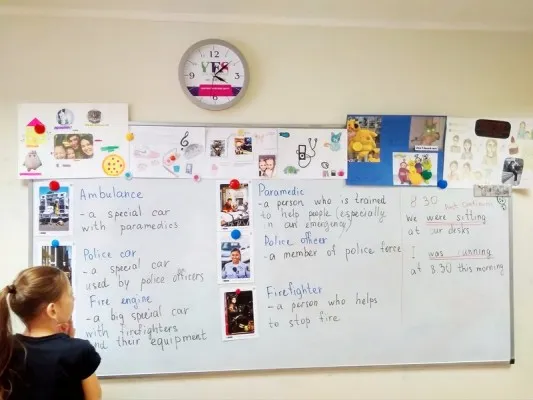 YES
Ambulance
- a special car
with paramedics
Police car
- a special car
used by police officers
Fire engine
- a big special car
with firefighters
and their equipment
Paramedic
- a person who is trained
to help people (especially
in an emergency)
Police officer
- a member of police force
Firefighter
- a person who helps
to stop fire
8 30
Past Continuous
We were sitting
at our desks
I was running
at 8.30 this morning